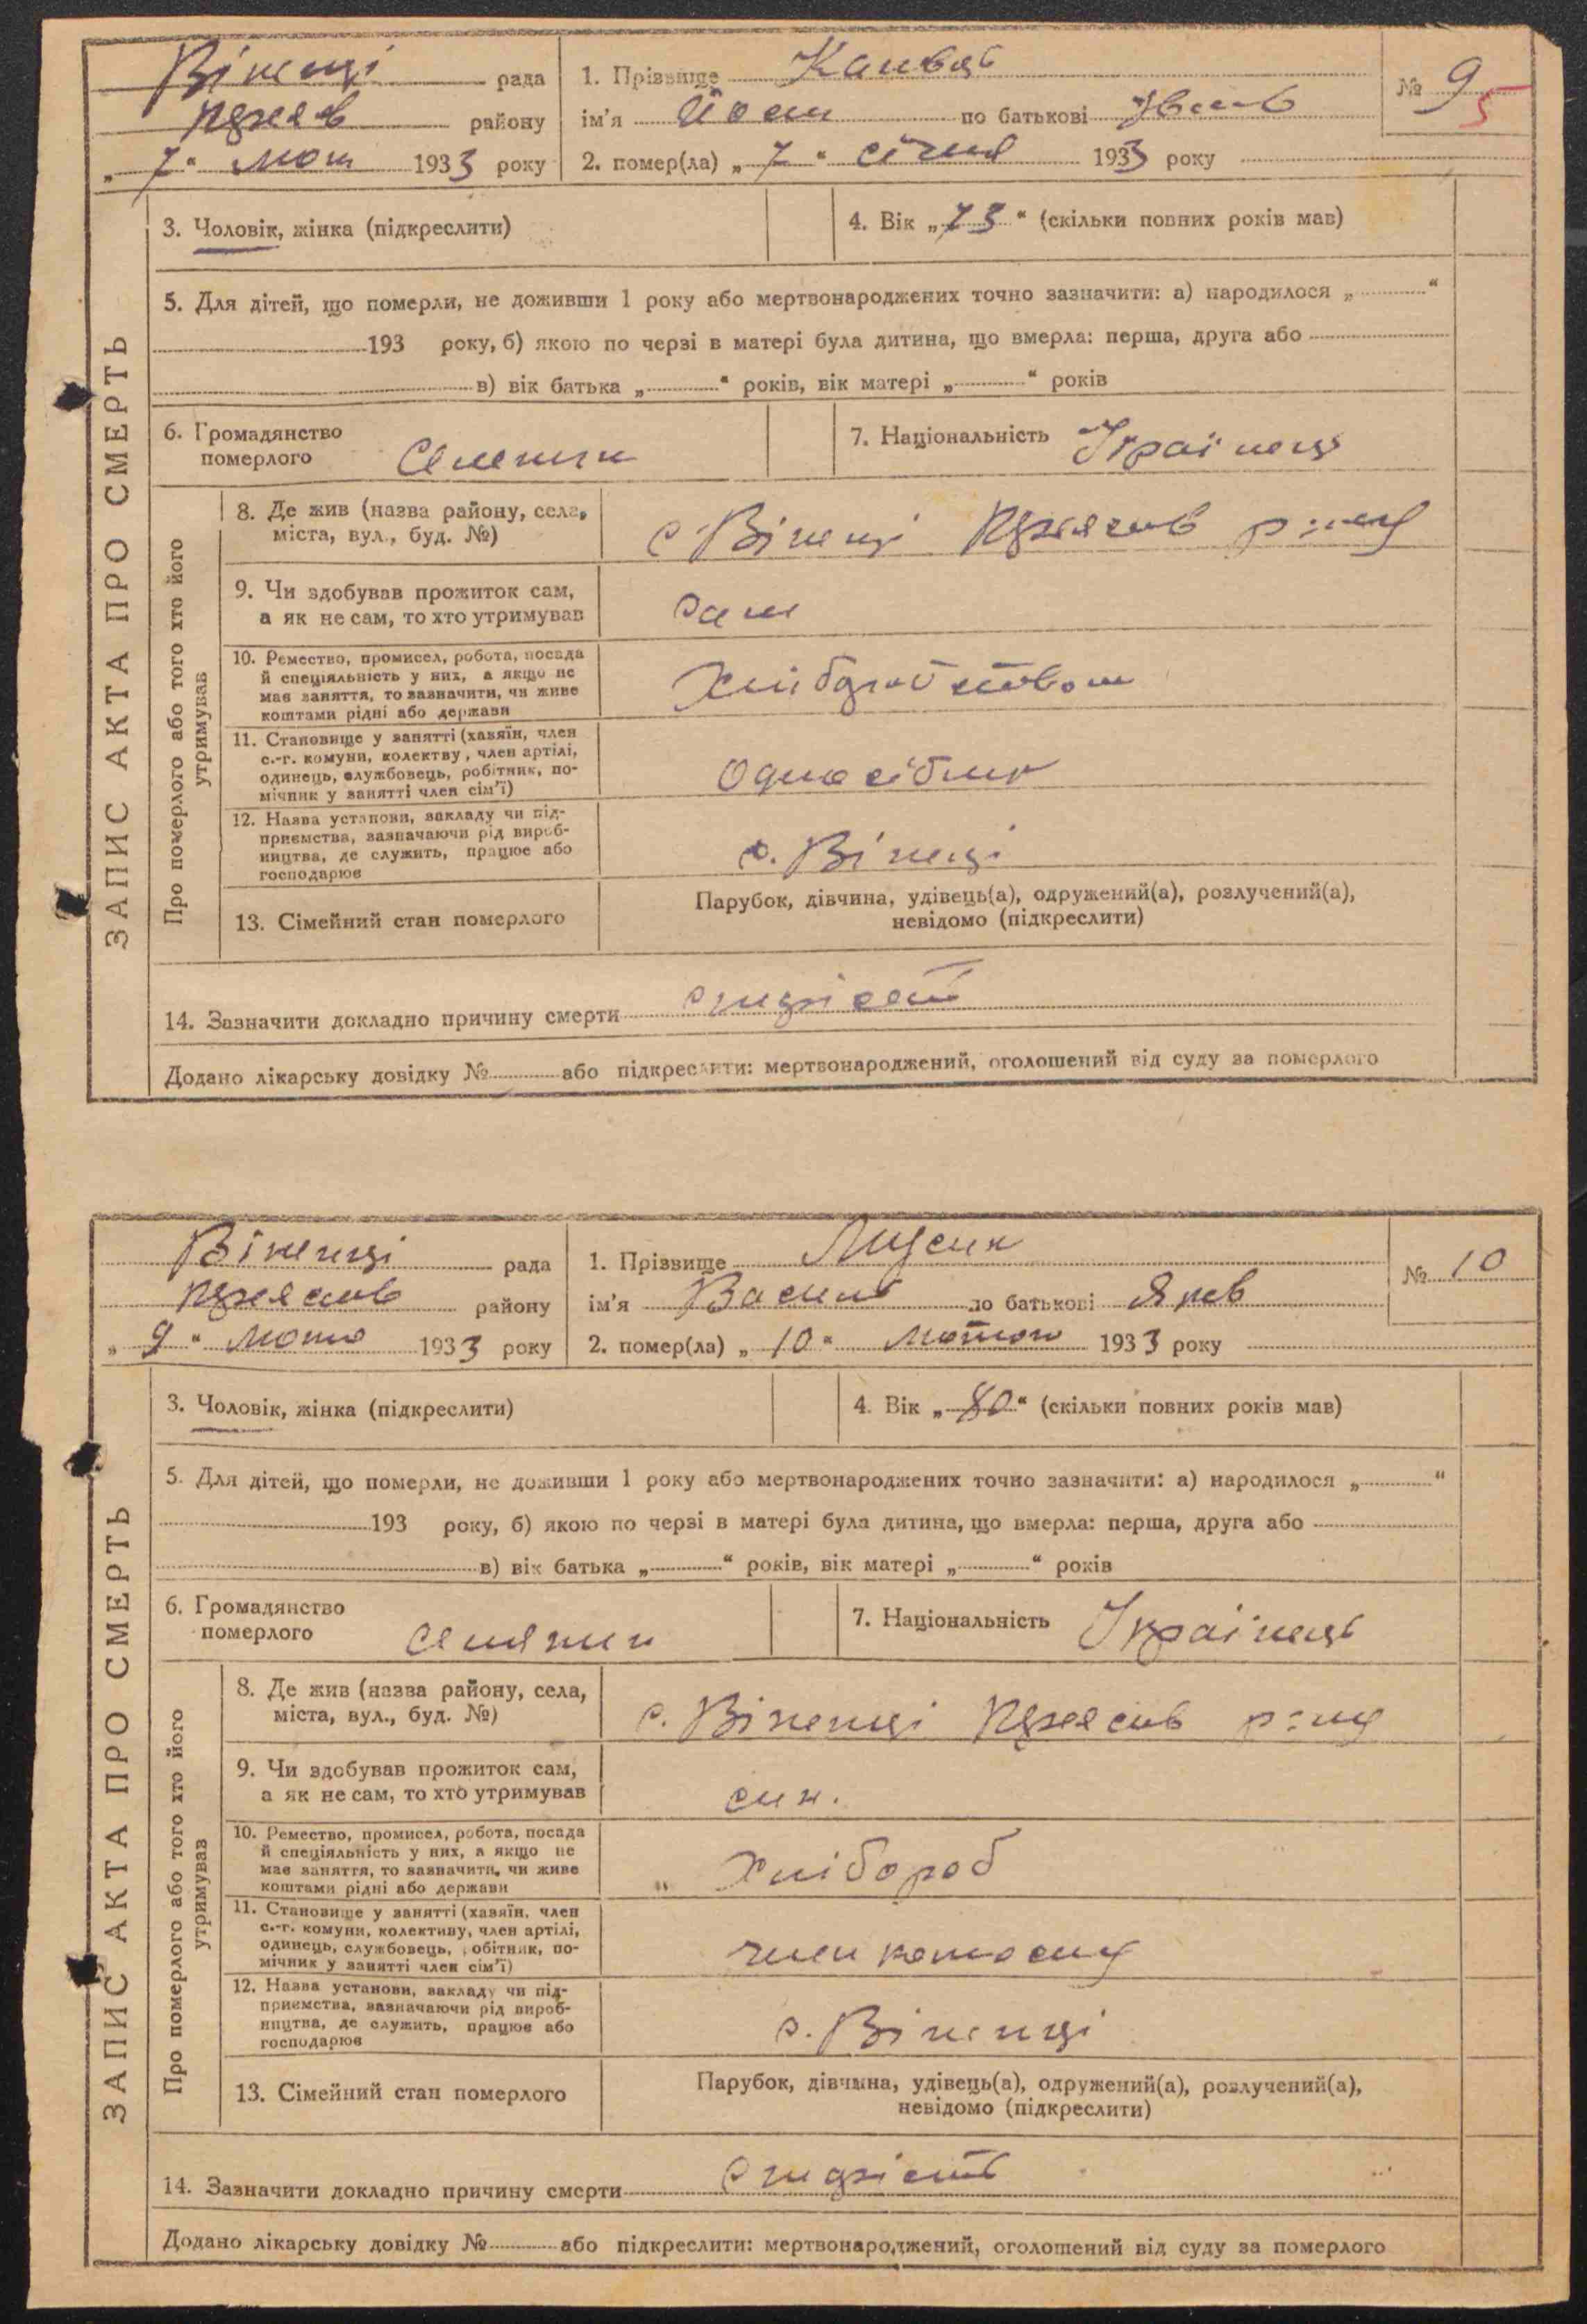 Віненці рада
району
„ 7 “ Лют 1933 року
1. Прізвище Канівць
ім'я Йосип по батькові Іванов
2. помер(ла) „ 7 “ січня 1933 року
№ 9
5
ЗАПИС АКТА ПРО СМЕРТЬ
3. Чоловік, жінка (підкреслити)
4. Вік „ 73 “ (скільки повних років мав)
5. Для дітей, що померли, не доживши 1 року або мертвонароджених точно зазначити: а) народилося „ “
193 року, б) якою по черзі в матері була дитина, що вмерла: перша, друга або
в) вік батька „ “ років, вік матері „ “ років
6. Громадянство
померлого Селянин
7. Національність Українець
Про померлого або того хто його
утримував
8. Де жив (назва району, села,
міста, вул., буд. №)
с. Віненці
9. Чи здобував прожиток сам,
а як не сам, то хто утримував
Сам
10. Ремество, промисел, робота, посада
й спеціяльність у них, а якщо не
має заняття, то зазначити, чи живе
коштами рідні або держави
11. Становище у занятті (хазяїн, член
с.-г. комуни, колектву, член артілі,
одинець, службовець, робітник, по-
мічник у занятті член сім'ї)
Односібник
12. Назва установи, закладу чи під-
приємства, зазначаючи рід вироб-
ництва, де служить, працює або
господарює
с. Віненці
13. Сімейний стан померлого
Парубок, дівчина, удівець(а), одружений(а), розлучений(а),
невідомо (підкреслити)
14. Зазначити докладно причину смерти
Додано лікарську довідку № або підкреслити: мертвонароджений, оголошений від суду за померлого
Віненці рада
району
„ 9 “ Лютого 1933 року
1. Прізвище Лисенк
ім'я Василь по батькові Яков
2. помер(ла) „ 10 “ Лютого 1933 року
№ 10
ЗАПИС АКТА ПРО СМЕРТЬ
3. Чоловік, жінка (підкреслити)
4. Вік „ 80 “ (скільки повних років мав)
5. Для дітей, що померли, не доживши 1 року або мертвонароджених точно зазначити: а) народилося „ “
193 року, б) якою по черзі в матері була дитина, що вмерла: перша, друга або
в) вік батька „ “ років, вік матері „ “ років
6. Громадянство
померлого селянин
7. Національність Українець
Про померлого або того хто його
утримував
8. Де жив (назва району, села,
міста, вул., буд. №)
с. Віненці
9. Чи здобував прожиток сам,
а як не сам, то хто утримував
син.
10. Ремество, промисел, робота, посада
й спеціяльність у них, а якщо не
має заняття, то зазначити, чи живе
коштами рідні або держави
„ Хлібороб
11. Становище у занятті (хазяїн, член
с.-г. комуни, колективу, член артілі,
одинець, службовець, робітник, по-
мічник у занятті член сім'ї)
член колгоспу
12. Назва установи, закладу чи під-
приємства, зазначаючи рід вироб-
ництва, де служить, працює або
господарює
с. Віненці
13. Сімейний стан померлого
Парубок, дівчина, удівець(а), одружений(а), розлучений(а),
невідомо (підкреслити)
14. Зазначити докладно причину смерти
Додано лікарську довідку № або підкреслити: мертвонароджений, оголошений від суду за померлого